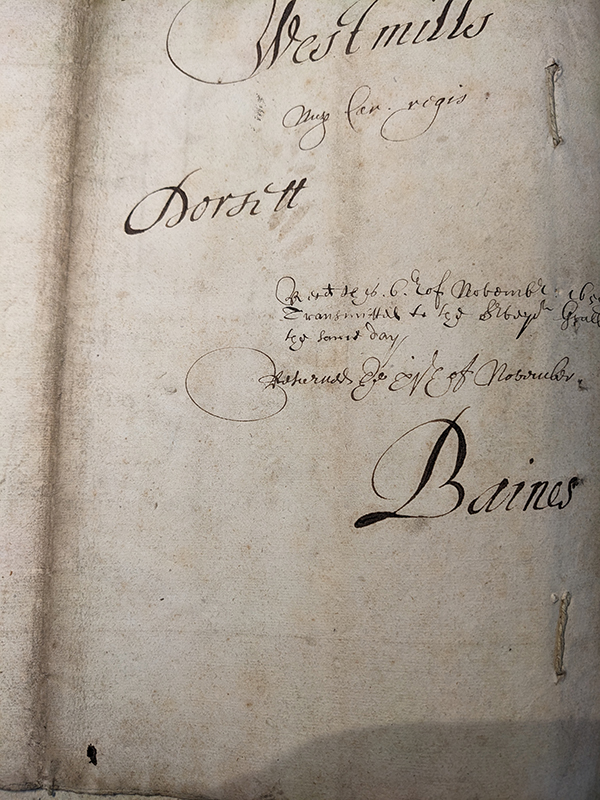 Westmills
Nup Car. regis
Dorsett
Recd the 6.th of Novembr. 165
Transmitted to the Surveyr Genall
the same day
Returned the of November.
Baines